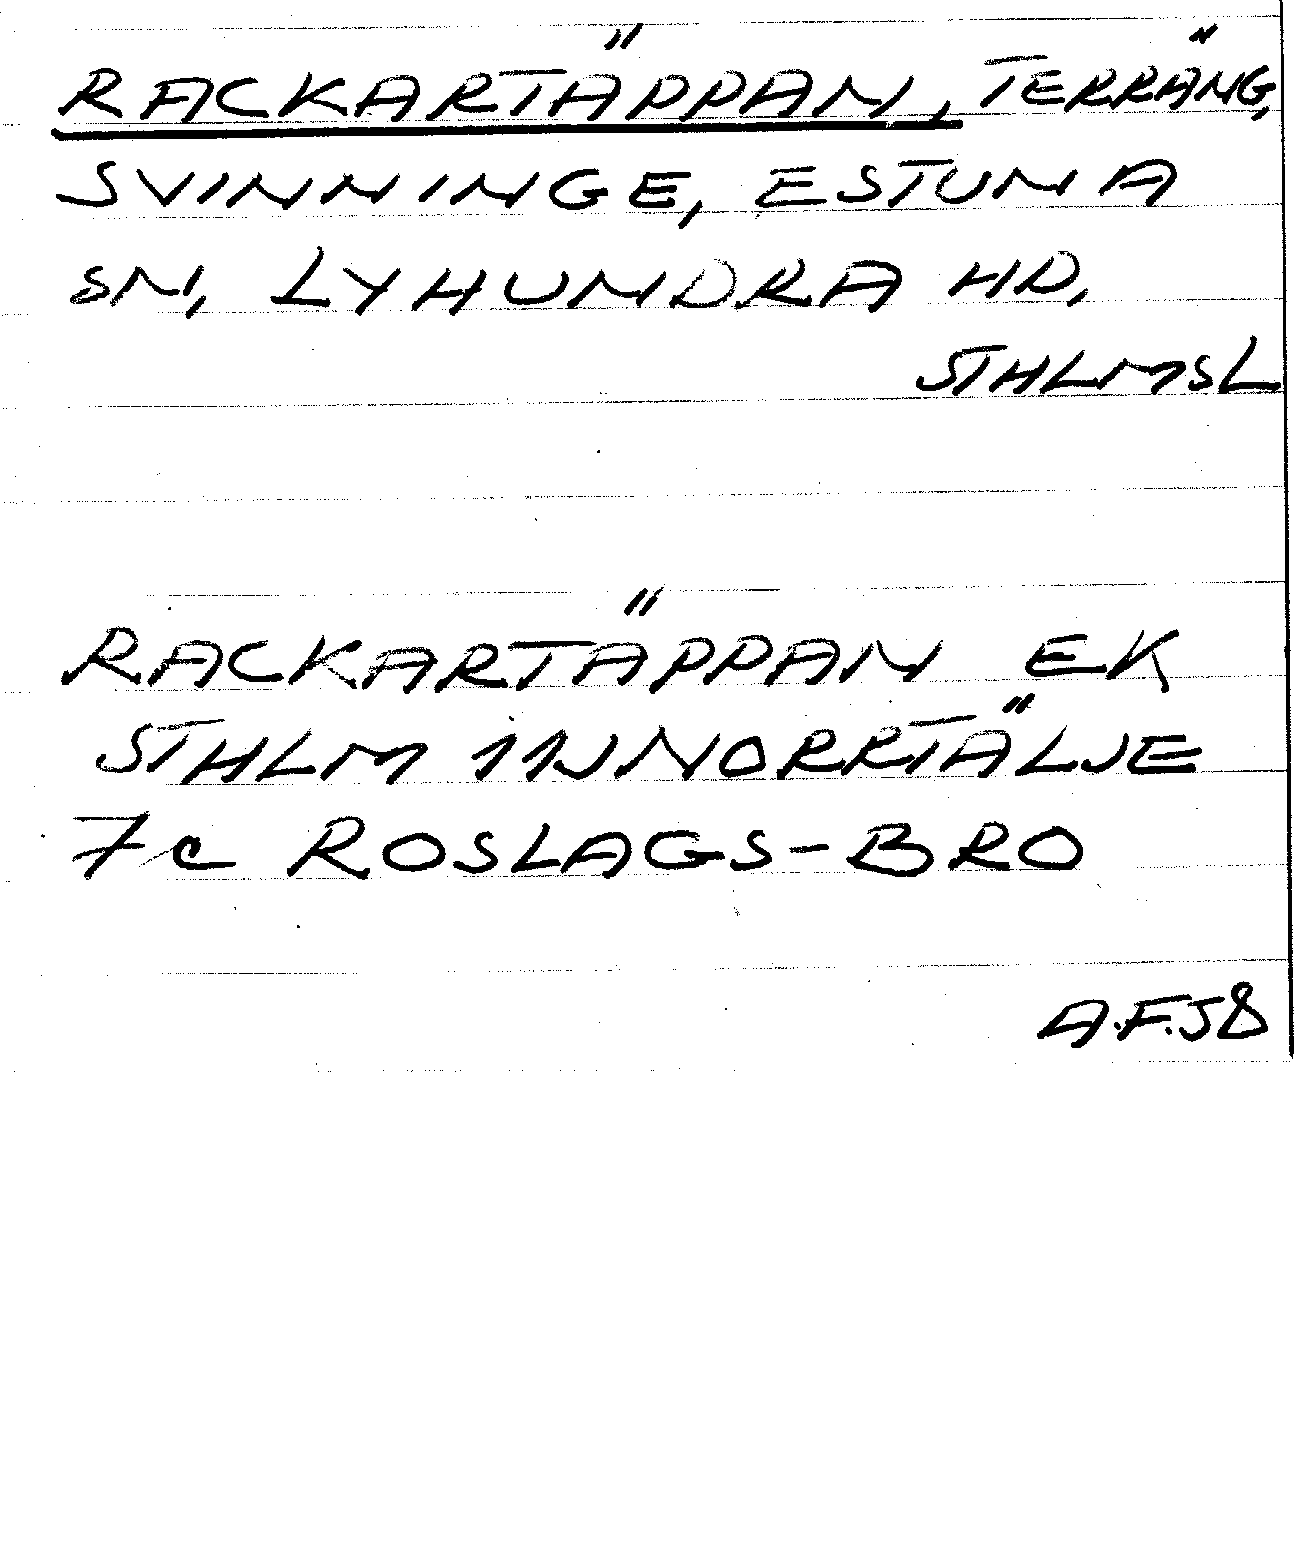 RACKARTÄPPAN, TERRÄNG,
SVINNINGE, ESTUNA
SN, LYHUNDRA HD,
STHLMSL
RACKARTÄPPAN EK
STHLM 11J NORRTÄLJE
7c ROSLAGS-BRO
A.F.58